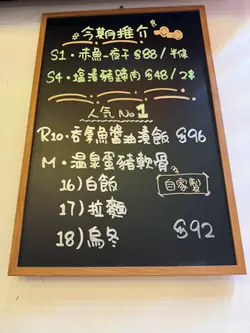 今期推介
S1·赤魚一夜干 $88/半條
S4·鹽漬豬頸肉 $48/2串
人気 No 1
R10·吞拿魚醬油漬飯 $96
M·温泉蛋豬軟骨
自家製
16)白飯
17)拉麵
18)烏冬 $92